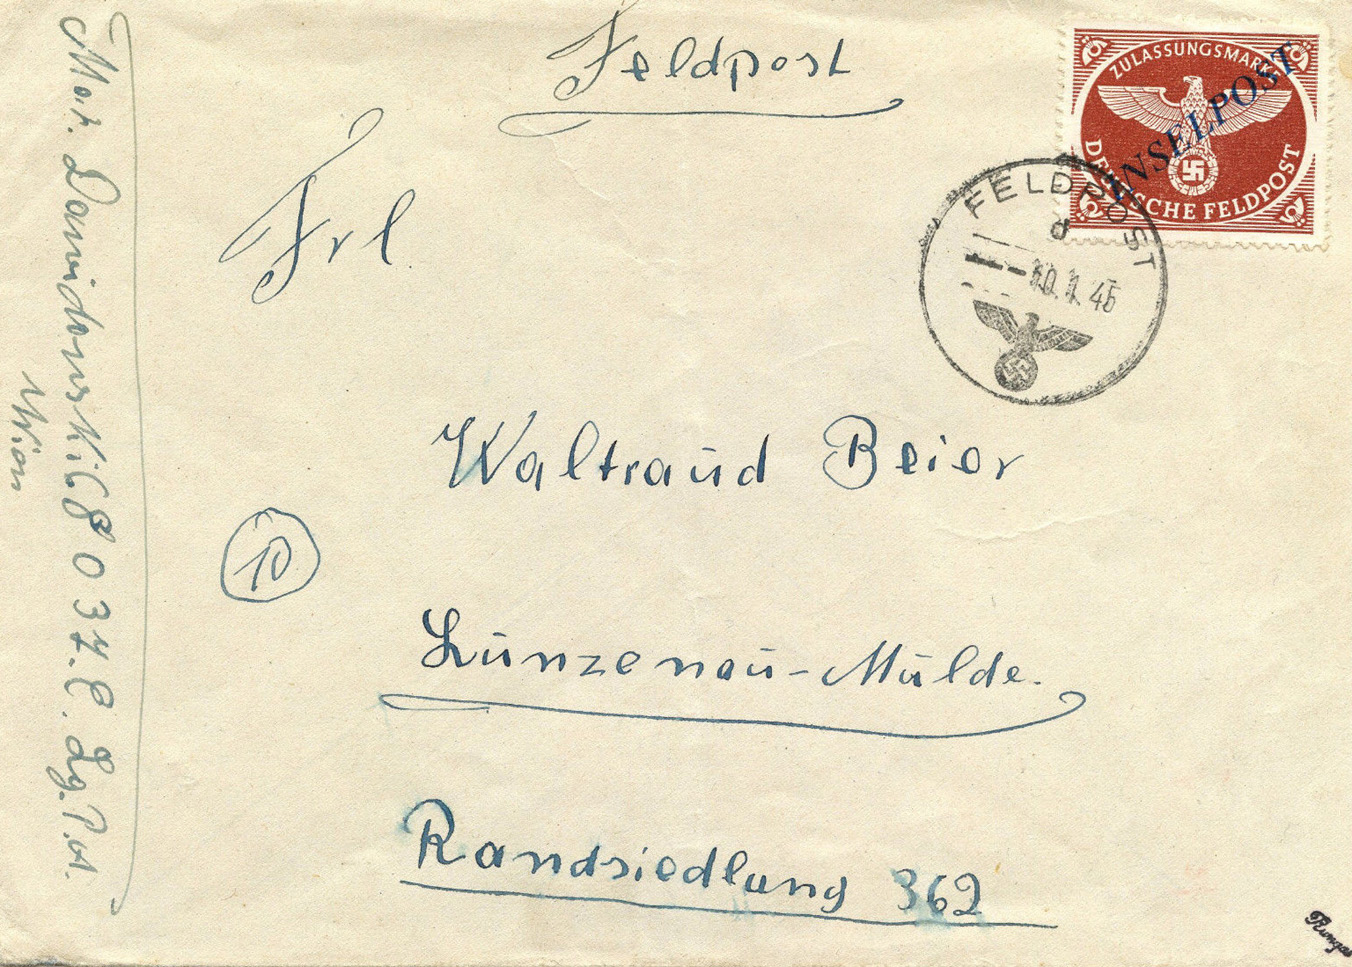 Feldpost
ZULASSUNGSMARKE
INSELPOST
DEUTSCHE FELDPOST
FELDPOST
d
10.1.45
Frl
Waltraud Beier
10
Lunzenau-Mulde.
Randsiedlung 362
Mat. Dawidowski 68037.C. Lg.P.A.
Wien